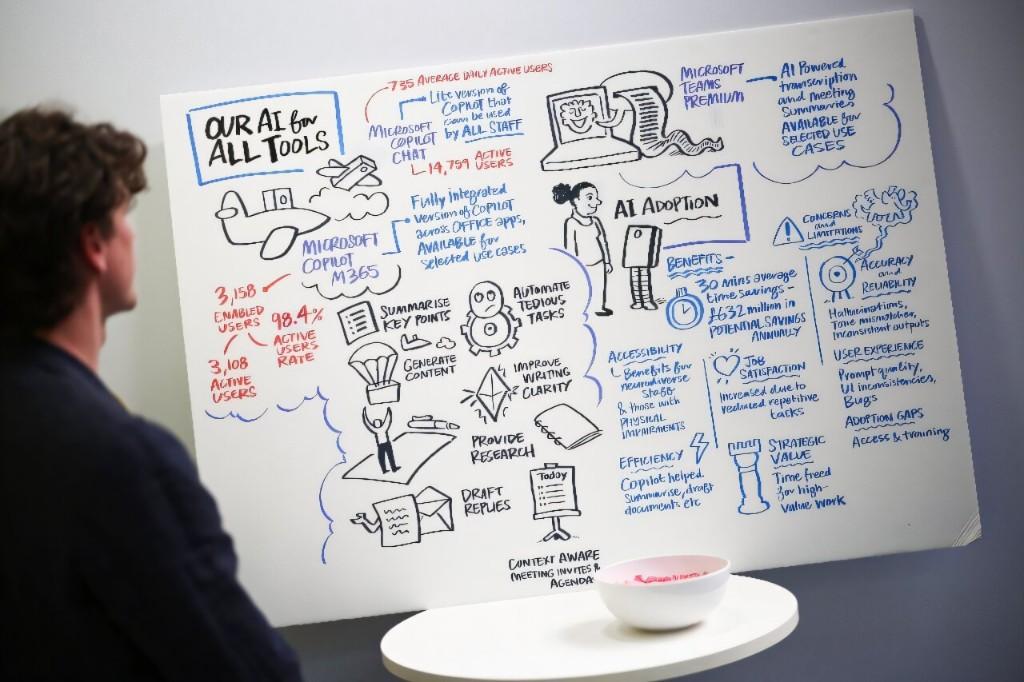 OUR AI for
ALL TOOLS
735 AVERAGE DAILY ACTIVE USERS
MICROSOFT
COPILOT
CHAT
Lite version of
COPILOT that
can be used
by ALL STAFF
14,759 ACTIVE
USERS
MICROSOFT
COPILOT
M365
Fully integrated
version of COPILOT
across OFFICE apps,
AVAILABLE for
selected use cases
3,158
ENABLED
USERS
98.4%
ACTIVE
USERS
RATE
3,108
ACTIVE
USERS
SUMMARISE
KEY POINTS
AUTOMATE
TEDIOUS
TASKS
GENERATE
CONTENT
IMPROVE
WRITING
CLARITY
PROVIDE
RESEARCH
DRAFT
REPLIES
Today
CONTEXT AWARE
MEETING INVITES &
AGENDA
MICROSOFT
TEAMS
PREMIUM
AI Powered
transcription
and meeting
Summaries
AVAILABLE for
SELECTED USE
CASES
AI ADOPTION
BENEFITS -
30 MINS average
time savings -
£632 million in
POTENTIAL SAVINGS
ANNUALLY
ACCESSIBILITY
Benefits for
neurodiverse
staff
& those with
PHYSICAL
IMPAIRMENTS
JOB
SATISFACTION
Increased due to
reduced repetitive
tasks
EFFICIENCY
Copilot helped
Summarise, draft
documents etc
STRATEGIC
VALUE
Time freed
for high-
value work
CONCERNS
and
LIMITATIONS
ACCURACY
and
RELIABILITY
Hallucinations,
Tone mismatches,
inconsistent outputs
USER EXPERIENCE
Prompt quality,
UI inconsistencies,
Bugs
ADOPTION GAPS
Access & training